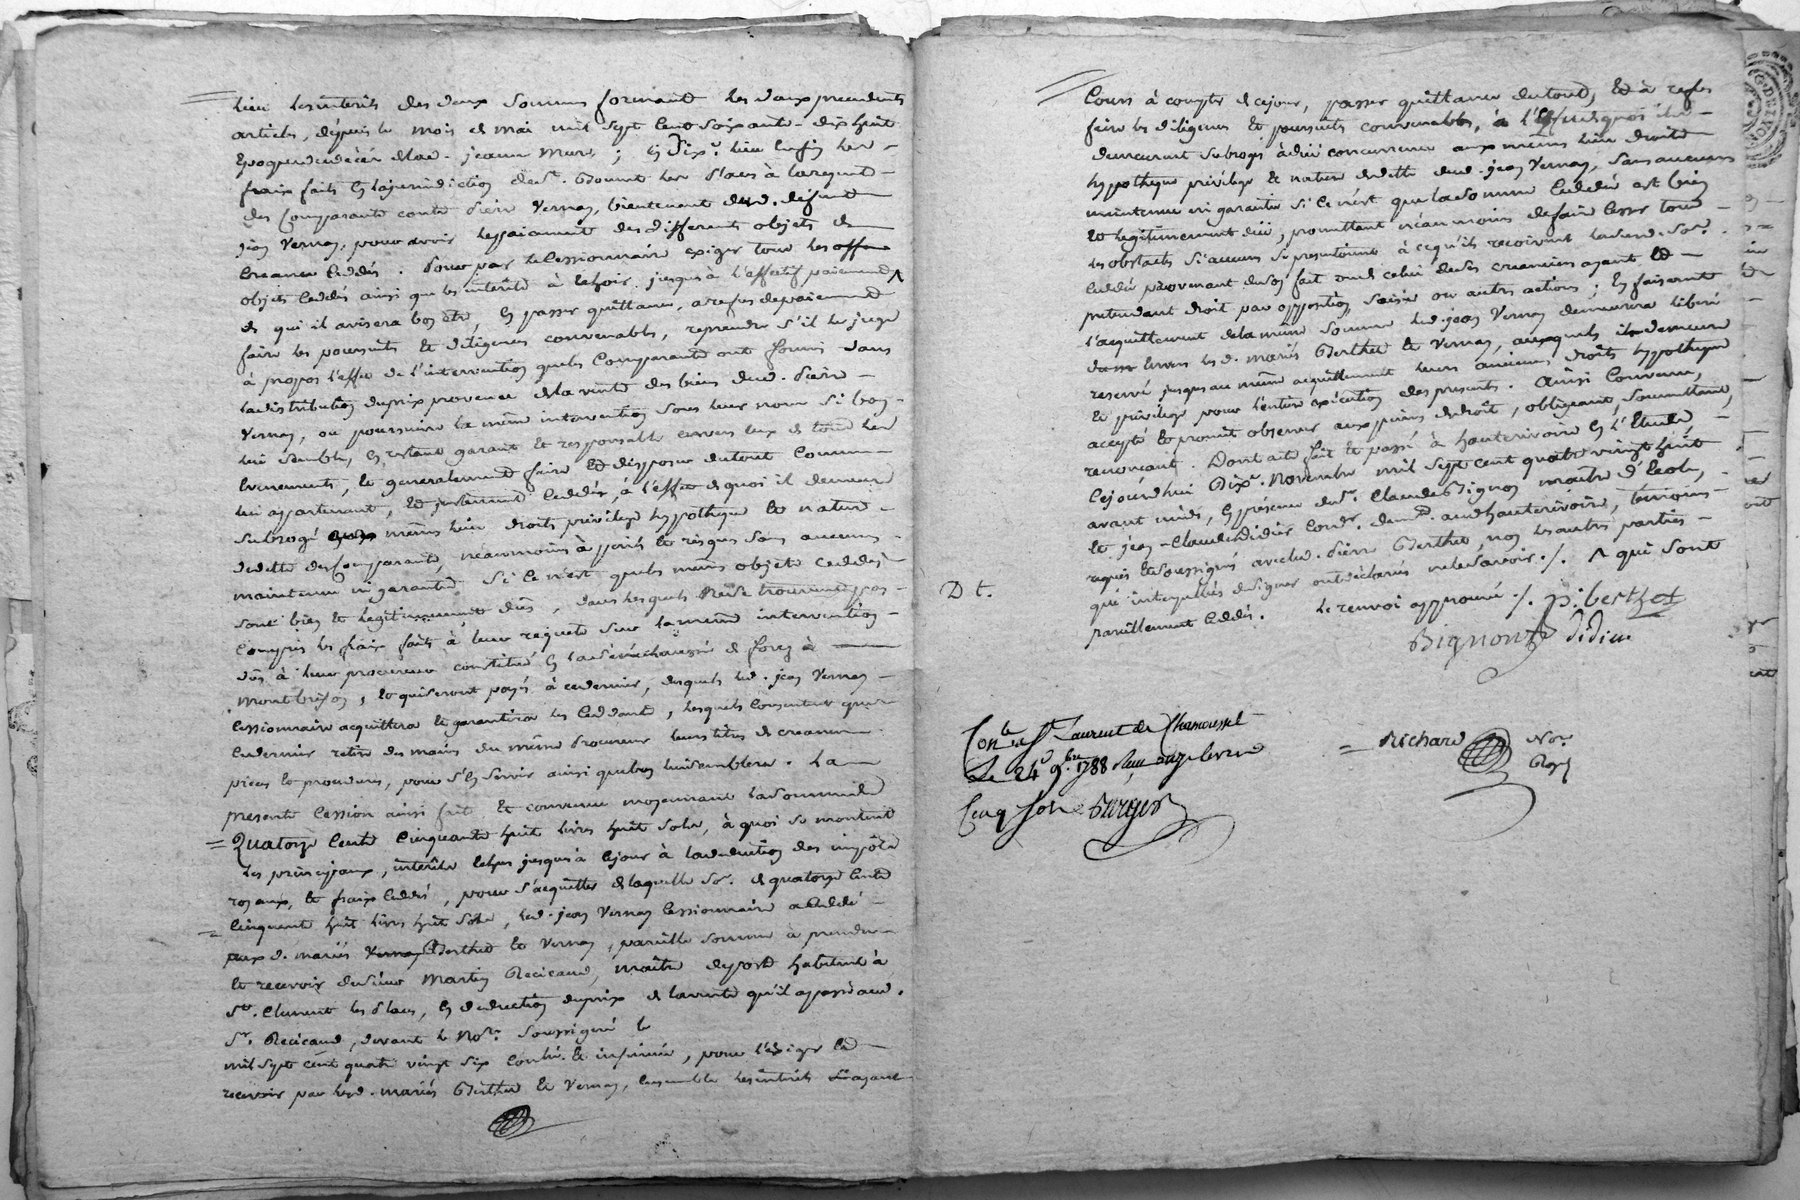 lieu les interets des deux sommes formant les deux precedents
articles, depuis le mois de mai mil sept cent soixante-dix huit
Epoque du décès de lad. jeanne Mure ; En Six.e lieu Enfin les
fraix faits En la jurisdiction de St. Clement les Places à la requete
des Comparants contre Pierre Vernay, bientenant dud. défunt
jean Vernay, pour avoir le paiement des differents objets de
Creance Cédés. Pour par le Cessionnaire exiger tous les
objets Cédés ainsi que les interets à Echoir jusqu'à l'effectif paiement ^
de qui il avisera bon etre, En passer quittance, a refus de paiement
faire les poursuites et diligences convenables, reprendre s'il le juge
à propos l'effet de l'intervention que les Comparants ont fourni dans
la distribution du prix provenu de la vente des biens dud. Pierre
Vernay, ou poursuivre la même intervention sous leur nom si bon
lui semble, En restant garant et responsable envers Eux de tous les
Evenements, Et generalement faire Et disposer du tout Comme
lui appartenant, Et justement Cédés, à l'effet de quoi il demeure
subrogé aux mêmes lieu droits privilege hypotheque Et nature
de dette des Comparants, néanmoins à perils Et risques Sans aucune
maintenue ni garantie Si Ce n'est que les mêmes objets Cedés
sont bien Et legitimement dûs, dans lesquels se trouvent
Compris les fraix faits à leur requete sur la même intervention
dûs à leur procureur constitué En la Sénéchaussée de forez à
Montbrison, Et qui seront payés à ce dernier, desquels led. jean Vernay
Cessionnaire acquittera Et garantira les Cedants, lesquels Consentent que
Ce dernier retire des mains du même Procureur leurs titres de creance
pieces Et procedures, pour s'En Servir ainsi que bon lui semblera. La
presente Cession ainsi fait Et convenue moyennant la Somme de
Quatorze Cents Cinquante huit livres huit sols, à quoi se montent
les principaux, intérêts Echus jusqu'à Ce jour à la deduction des impôts
royaux, Et fraix Cedés, pour s'acquitter de laquelle So.e de quatorze Cents
Cinquante huit livres huit Sols, led. jean Vernay Cessionnaire a Cedé
aux d. mariés Berthet Et Vernay, pareille somme à prendre
Et recevoir du Sieur Martin Recicaud, maitre de poste habitant à
St. Clement les Places, En deduction du prix de la vente qu'il a passé aud.
Sr. Recicaud, devant le No.re soussigné le
mil sept cent quatre vingt six Contr. Et insinuée, pour l'exiger Et
recevoir par lesd. mariés Berthet Et Vernay, Ensemble les interets
Cours à compter de ce jour, passer quittance du tout, Et à refus
faire les diligences Et poursuites convenables, à l'Effet de quoi ils
demeurent Subrogés à due concurrence aux memes lieu droits
hypotheque privilége Et nature de dette dud. jean Vernay, Sans aucune
maintenue ni garantie Si Ce n'est que la Somme Cédée est bien
Et legitimement düe, promettant néanmoins de faire Cesser tous
les obstacles Si aucuns Se presentoient à ce qu'ils recoivent lad. So.e
Cédée provenant de son fait ou de celui de Ses Creanciers ayant Et
pretendant droit par opposition, Saisie ou autres actions ; En faisant
l'acquittement de la même Somme led. jean Vernay demeurera liberé
envers lesd. mariés Berthet Et Vernay, auxquels demeure
reservé jusques au même acquittement leurs anciens droits hypotheque
Et privilege pour l'entiere exécution des presentes. Ainsi Convenu,
accepté Et promit observer aux peines de droit, obligeant, Soumettant,
renonçant. Dont acte fait Et passé à hauterivoire En l'Etude
Cejourd'hui Dix.e Novembre mil Sept cent quatre vingt huit
avant midi, En présence du Sr. Claude Bignon maitre d'Ecole,
Et jean-Claude Didier Cord.r demt. aud. hauterivoire, temoins
requis Et Soussignés avec led. Pierre Berthet, non les autres parties
qui interpellés de Signer ont déclarés ne le Savoir./. ^ qui sont
pareillement Cédés. le renvoi approuvé ./. p: berthet
D t.
Bignon Didier
Con.le a St Laurent de Chamousset
Le 24 9.bre 1788 Reçu onze livres
Cinq sols Burger
= Richard No.re
Royal